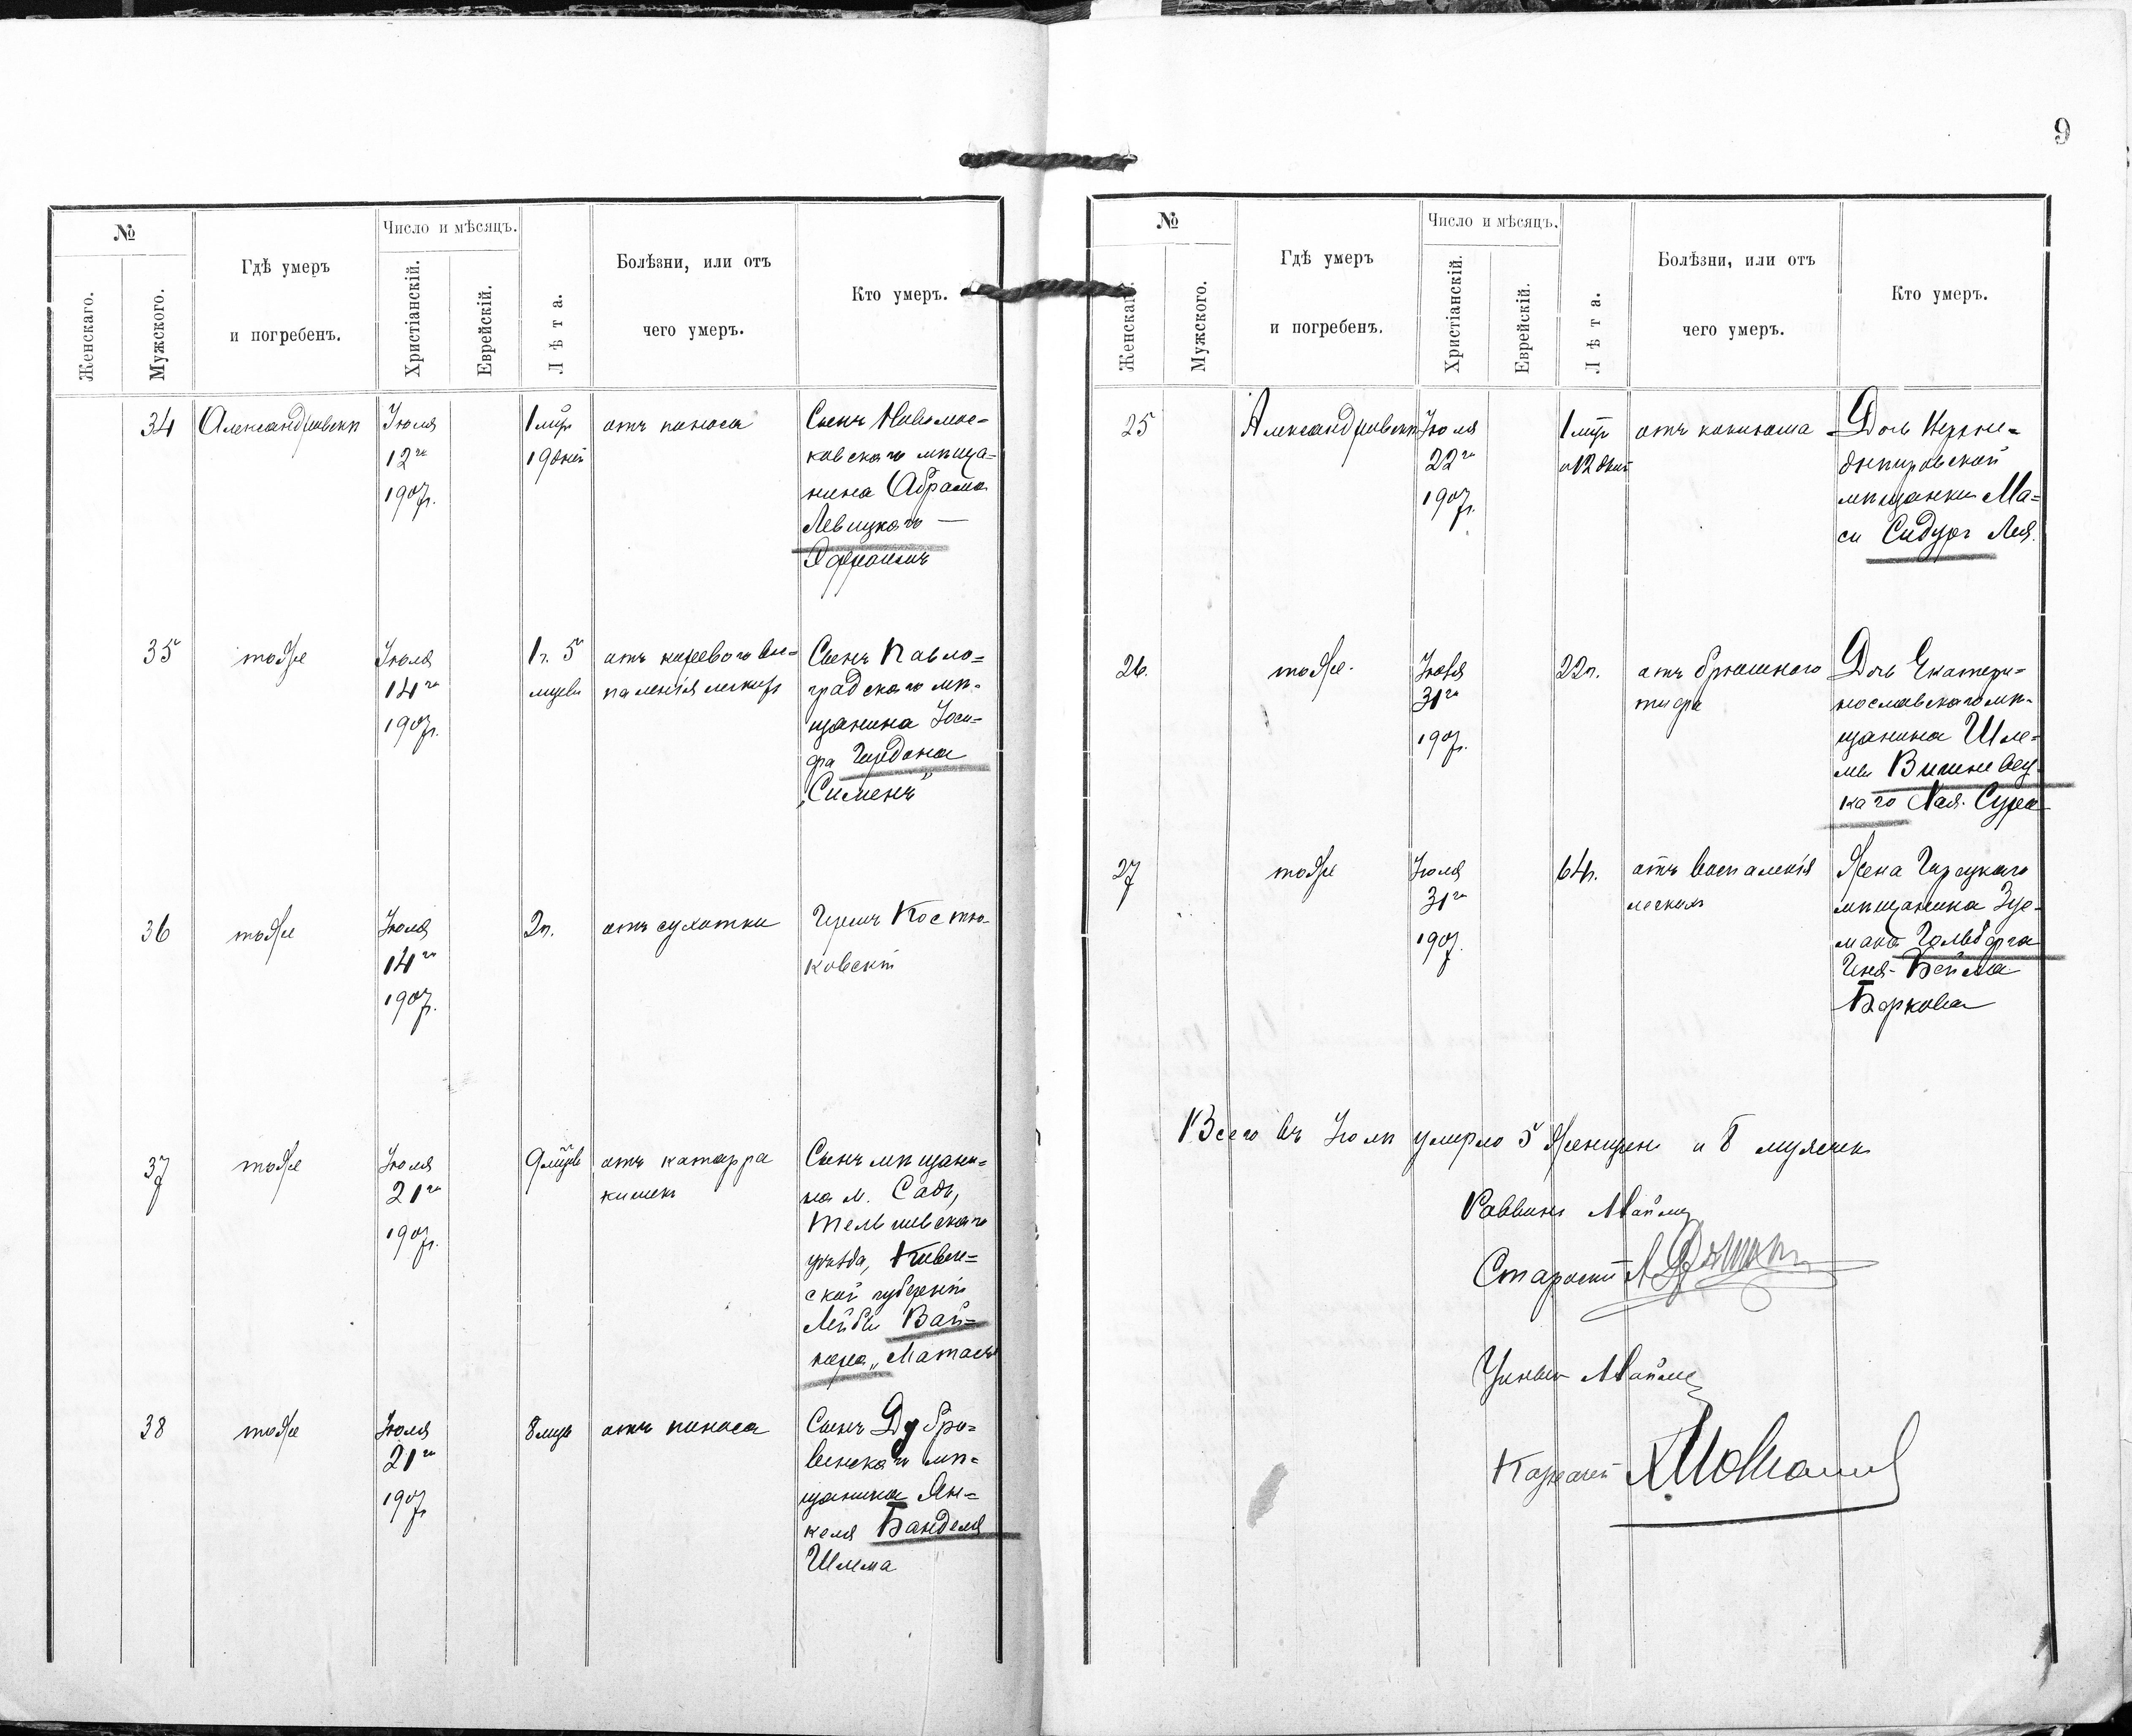 9
№
Гдѣ умеръ
и погребенъ.
Число и мѣсяцъ.
Женскаго.
Мужского.
Христіанскій.
Еврейскій.
Лѣта.
Болѣзни, или отъ
чего умеръ.
Кто умеръ.
34
Александровскъ
Іюля
12го
1907г.
1 мцъ
19 дней
отъ поноса
Сынъ Новомос=
ковскаго мѣща=
нина Абрама
Левицкаго —
Эфроимъ
35
тоже
Іюля
14го
1907г.
1г. 5
мцевъ
паленія легкихъ
Сынъ Павло=
градскаго мѣ=
щанина Іоси=
фа Гордона
„Сименъ"
36
тоже
Іюля
14го
1907г.
2г.
отъ сухотки
Гершъ Костю=
ковскій
37
тоже
Іюля
21го
1907г.
9 мцевъ
отъ катарра
кишекъ
Сынъ мѣщани=
на м. Сады,
Тельшевскаго
уѣзда, Ковен=
ской губерніи
Лейбы Вай=
нера „Матась
38
тоже
Іюля
21го
1907г
8 мцевъ
отъ поноса
Сынъ Дубро=
венскаго мѣ=
щанина Ян=
келя Банделя
Шлема
№
Гдѣ умеръ
и погребенъ.
Число и мѣсяцъ.
Женскаго.
Мужского.
Христіанскій.
Еврейскій.
Лѣта.
Болѣзни, или отъ
чего умеръ.
Кто умеръ.
25
Александровскъ
Іюля
22го
1907г.
1 мцъ
и 12 дней
отъ коклюша
Дочь Верхне=
днѣпровской
мѣщанки Ма=
си Сидуръ Лея.
26.
тоже.
Іюля
31го
1907г.
22г.
отъ брюшного
тифа
Дочь Екатери=
нославскаго мѣ=
щанина Шле=
мы Вишневец=
каго Хая-Сура
27
тоже
Іюля
31го
1907.
64г.
отъ воспаленія
легкихъ
Жена
мѣщанина Зус=
мана Гольберга
Бейла
Боркова
Всего въ Іюлѣ умерло 5 женщинъ и 8 мужчинъ
Раввинъ
Староста
Ученый
Казначей